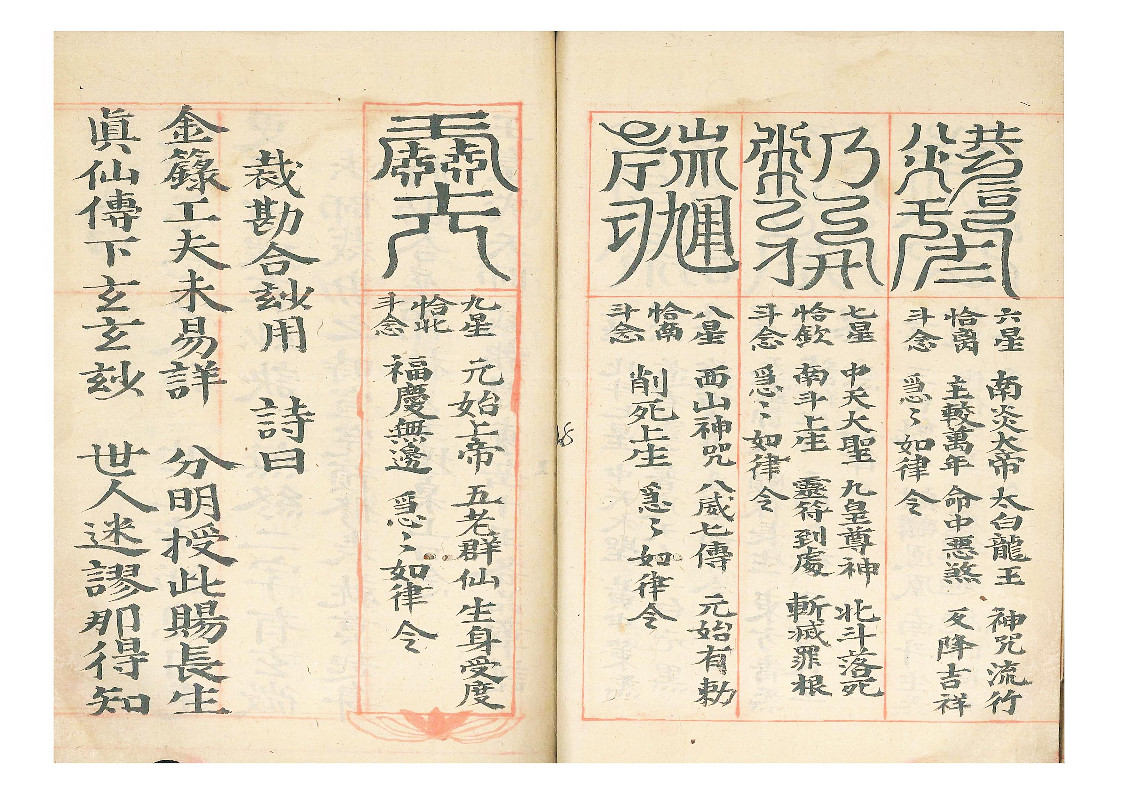 六星
恰
斗念
南炎大帝 太白龍王 神咒流行
主較萬年 命中悪煞 反降吉祥
急〻如律令
七星
恰欽
斗念
中天大聖 九皇尊神 北斗落死
南斗上生 靈符到處 斬滅罪根
急〻如律令
八星
恰
斗念
西山神咒 八威七傳 元始有勅
削死上生 急〻如律令
九星
恰北
斗念
元始上帝 五老群仙 生身受度
福慶無邊 急〻如律令
裁勘合玅用 詩曰
金籙工夫未易詳 分明授此賜長生
眞仙傳下玄玄玅 世人迷謬那得知